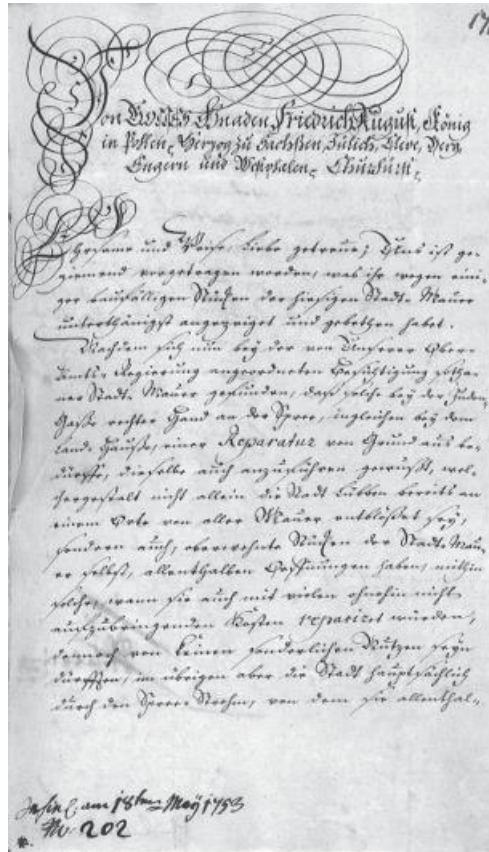 Von Gottes Gnaden Friedrich August, König
in Pohlen, Herzog zu Sachßen, Jülich, Cleve, Berg,
Engern und Westphalen, Churfürst,
Ehrsame und Weise, liebe getreue; Uns ist ge-
ziemend vorgetragen worden, was ihr wegen eini-
ger baufälligen Stücken der hiesigen Stadt-Mauer
unterthänigst angezeiget und gebethen habet.
Nachdem sich nun bey der von Unserer Ober-
Amts-Regierung angeordneten Besichtigung sotha-
ner Stadt-Mauer gefunden, daß solche bey der Juden-
Gaße rechter Hand an der Spree, ingleichen bey dem
Land-Hauße, einer Reparatur von Grund aus be-
dürffe, dieselbe auch anzuführen gewußt, wel-
chergestalt nicht allein die Stadt Lübben bereits an
einem Orte von aller Mauer entblößet sey,
sondern auch, oberwehnte Stücken der Stadt-Mau-
er selbst, allenthalben Oeffnungen haben, mithin
solche, wann sie auch mit vielen ohnehin nicht
aufzubringenden Kosten reparirt würden,
dennoch von keinen sonderlichen Nutzen seyn
dürfften, im übrigen aber die Stadt hauptsächlich
durch den Spree-Strohm, von dem sie allenthal-
am 18ten May 1753
No. 202